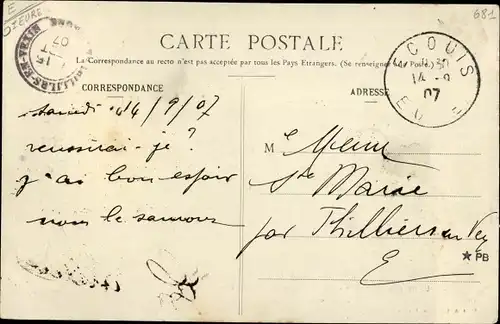 681
CARTE POSTALE
La Correspondance au recto n'est pas acceptée par tous les Pays Etrangers. (Se renseigner à la Poste.)
CORRESPONDANCE
ADRESSE
ECOUIS
14 -9
07
EURE
THILLIERS-EN-VEXIN
15
07
Samedi 14/9/07
reussirai-je ?
j'ai bon espoir
nous le saurons
M
Ste Marie
par Thilliers en Vex
E
★PB